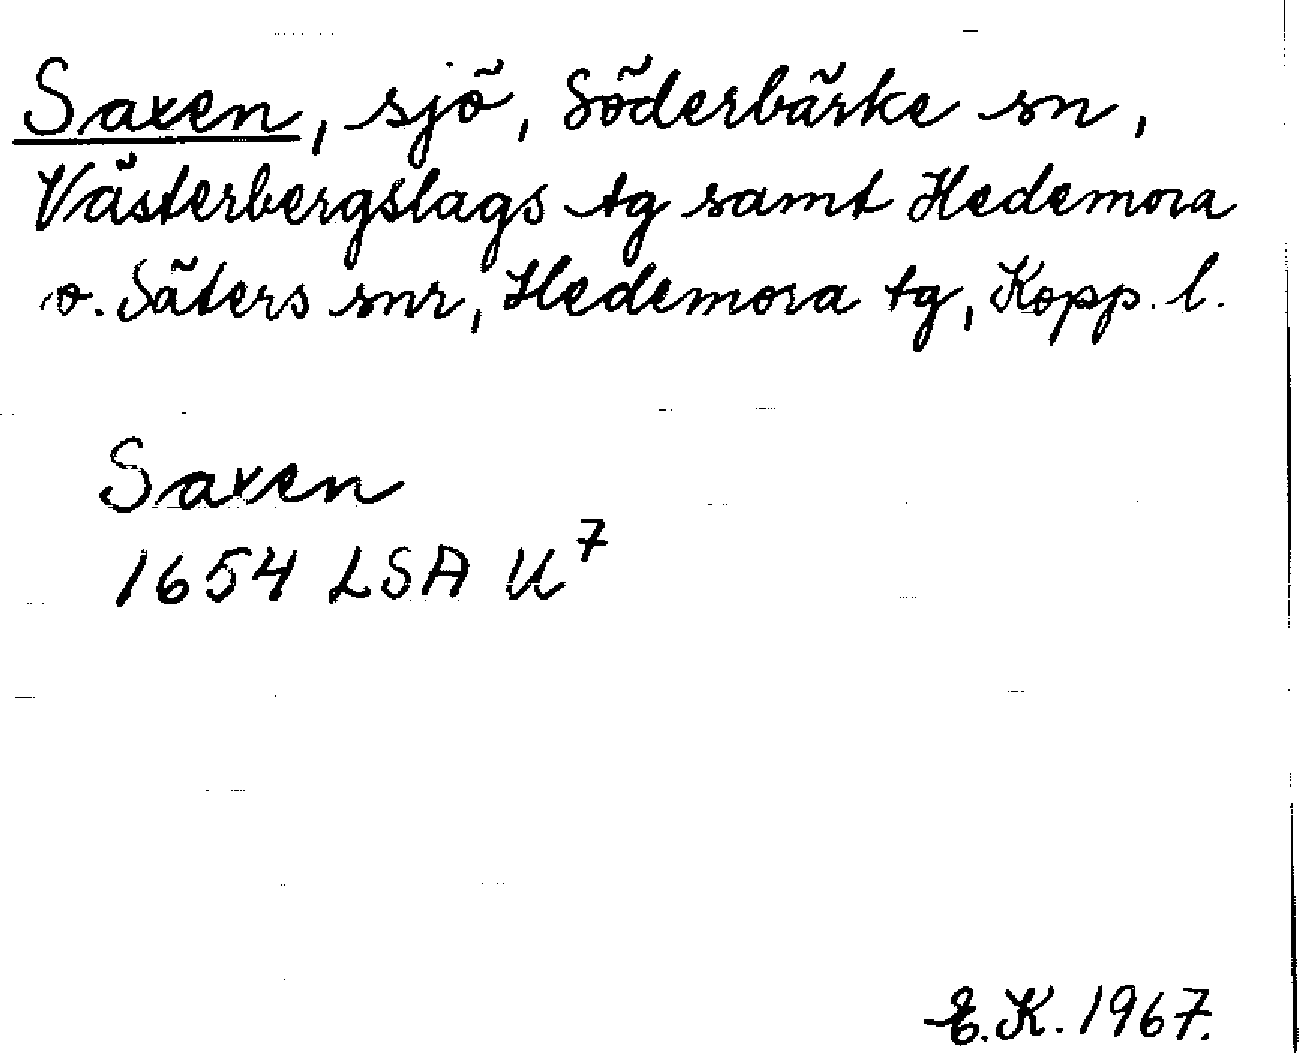 Saxen, sjö, Söderbärke sn,
Västerbergslags tg samt Hedemora
o. Säters snr, Hedemora tg, Kopp. l.
Saxen
1654 LSA U⁷
E.K. 1967.